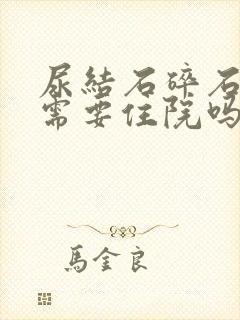 尿結石碎石
需要住院吗
馬金良